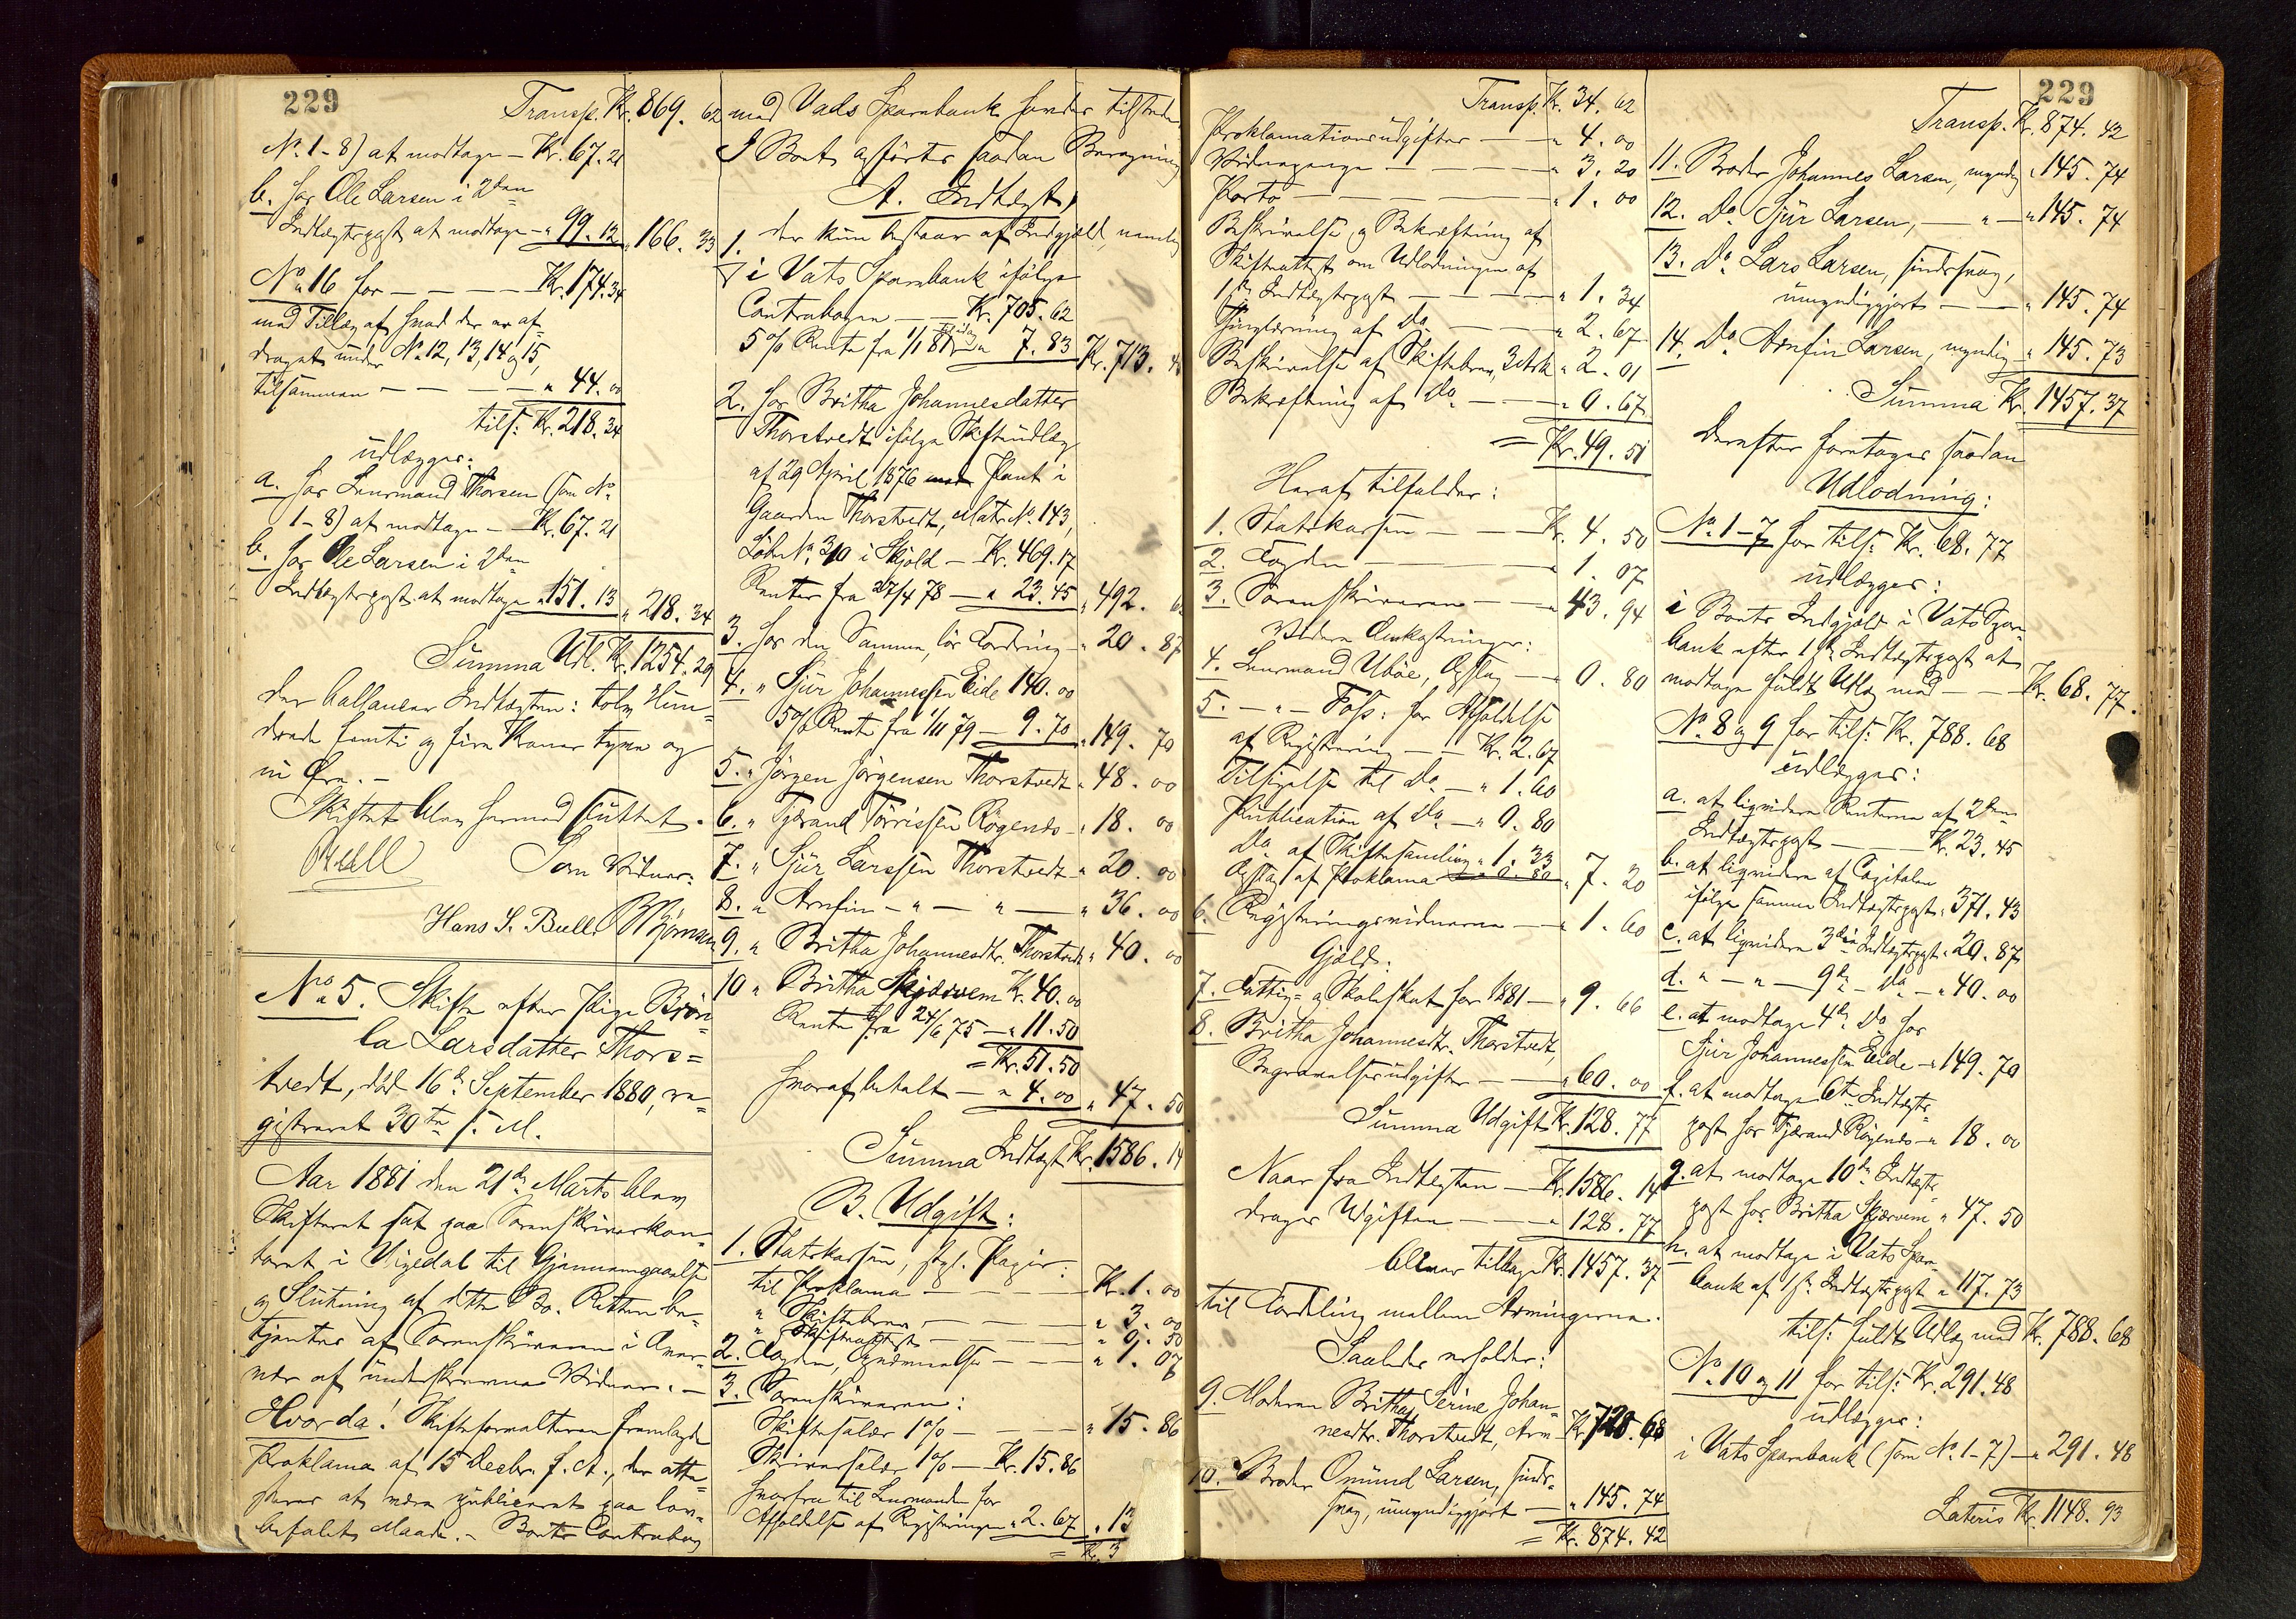 229
Transp. Kr. 869. 62
No. 1-8) at modtage - Kr. 67. 21
b. hos Ole Larsen i 2den
Indtægtspost at modtage - " 99. 12 " 166. 33
No. 16 for - - - - Kr. 174. 34
med Tillæg af hvad der er af-
draget under No. 12, 13, 14 og 15,
tilsammen - - - - " 44. 00
tils: Kr. 218. 34
udlægges:
a. hos Lensmand Thorsen (som No.
1-8) at modtage - Kr. 67. 21
b. hos Ole Larsen i 2den
Indtægtspost at modtage " 151. 13 " 218. 34
Summa Udl. Kr. 1254. 29
der ballancer Indtægten: tolv Hun-
drede femti og fire Kroner tyve og
ni Øre. -
Skiftet blev hermed sluttet.
Bull
Som Vidner:
Hans S. Bull. Bjørnsen
No. 5. Skifte efter Pige Brön-
la Larsdatter Thors=
tvedt, död 16de September 1880, re-
gistreret 30te s. M.
Aar 1881 den 21de Marts blev
Skifteret sat paa Sorenskriverkon-
toret i Vigedal til Gjennemgaaelse
og Slutning af dette Bo. Retten be-
tjentes af Sorenskriveren i Over-
vær af underskrevne Vidner. -
Hvorda! Skifteforvalteren fremlagde
Proklama af 15 Decbr. f. A., der atte-
steres at være publiceret paa lov-
befalet Maade. - Boets Contrabog
med Vads Sparebank havdes tilstede.
I Boet opførtes saadan Beregning
A. Indtægt,
der kun bestaar af Indgjæld, nemlig
1. i Vats Sparebank ifølge
Contrabogen - - Kr. 705. 62
5% Rente fra 1/1 81 " 7. 83 Kr. 713. 45
2. hos Britha Johannesdatter
Thorstvedt ifølge Skifteudlæg
af 29 April 1876 med Pant i
Gaarden Thorstvedt, Matr. No. 143,
Löbe No. 310 i Skjold - Kr. 469. 17
Renter fra 27/4 78 - " 23. 45 " 492. 62
3. hos den Samme, lös Fordring - " 20. 87
4. " Sjur Johannessen Eide 140. 00
5% Rente fra 1/11 79 - 9. 70 " 149. 70
5. " Jörgen Jörgensen Thorstvedt " 48. 00
6. " Tjerand Törrissen Rögends - " 18. 00
7. " Sjur Larssen Thorstvedt - " 20. 00
8. " Arnfin - " - " - " 36. 00
9. " Britha Johannesdtr. Thorstvedt " 40. 00
10 " Britha Skjærvem Kr. 40. 00
Rente fra 24/6 75 - " 11. 50
= Kr. 51. 50
hvoraf betalt - " 4. 00 " 47. 50
Summa Indtægt Kr. 1586. 14
B. Udgift:
1. Statskassen, stpl. Papir:
til Proklama - - - Kr. 1. 00
" Skiftebrev - - - " 3. 00
" Skifteattest - - - " 0. 50
2. Fogden, - - - " 1. 07
3. Sorenskriveren:
Skiftesalær 1% - - - " 15. 86
Skriversalær 1% - Kr. 15. 86
hvorfra til Lensmanden for
Afholdelse af Registreringen " 2. 67 " 13
= Kr. 3
Transp. Kr. 34. 62
Proklamationsudgifter - - " 4. 00
Vidnepenge - - - - " 3. 20
Porto - - - - - " 1. 00
Beskrivelse og Bekræftning af
Skifteattest om Udlodningen af
1ste Indtægtspost - - - " 1. 34
Thinglæsning af Do. - - - " 2. 67
Beskrivelse af Skiftebrev, 3 Ark " 2. 01
Bekræftning af Do. - - - " 0. 67
= Kr. 49. 51
Heraf tilfalder:
1. Statskassen - - - Kr. 4. 50
2. Fogden - - - - " 1. 07
3. Sorenskriveren - - - " 43. 94
Videre Omkostninger:
4. Lensmand Ubøe, Opslag - " 0. 80
5. - " - Foss: for Afholdelse
af Registrering - - Kr. 2. 67
Tilsigelse til Do. - " 1. 60
Publication af Do. - " 0. 80
Do. af Skiftesamling " 1. 33
Opslag af Proklama " 0. 80 " 7. 20
6. Registreringsvidnerne - - " 1. 60
Gjæld:
7. Fattig- og Skoleskat for 1881 - " 9. 66
8. Britha Johannesdtr. Thorstvedt,
Begravelsesudgifter - - " 60. 00
Summa Udgift Kr. 128. 77
Naar fra Indtægten - Kr. 1586. 14
drages Udgiften - - - " 128. 77
bliver tilbage Kr. 1457. 37
til Fordeling mellem Arvingerne.
Saaledes erholder:
9. Moderen Britha Serine Johan-
nesdtr. Thorstvedt, Arv Kr. 728. 68
10. Broder Omund Larsen, sinds-
svag, umyndiggjort - " 145. 74
= Kr. 874. 42
229
Transp. Kr. 874. 42
11. Broder Johannes Larsen, myndig " 145. 74
12. Do. Sjur Larsen, - " - " 145. 74
13. Do. Lars Larsen, sindssvag,
umyndiggjort - - " 145. 74
14. Do. Arnfin Larsen, myndig " 145. 73
Summa Kr. 1457. 37
Derefter foretoges saadan
Udlodning:
No. 1-7 for tils: Kr. 68. 77
udlægges:
i Boets Indgjæld i Vats Spare-
bank efter 1ste Indtægtspost at
modtage fuldt Udlæg med - - Kr. 68. 77.
No. 8 og 9 for tils: Kr. 788. 68
udlægges:
a. at liqvidere Renterne af 2den
Indtægtspost - - - Kr. 23. 45
b. at liqvidere af Capitalen
ifølge samme Indtægtspost " 371. 43
c. at liqvidere 3die Indtægtspost " 20. 87
d. " - " - 9de - Do. - " 40. 00
e. at modtage 4de Do. hos
Sjur Johannessen Eide - " 149. 70
f. at modtage 6te Indtægts-
post hos Tjerand Rögends - " 18. 00
g. at modtage 10de Indtægts-
post hos Britha Skjærvem " 47. 50
h. at modtage i Vats Spare-
bank af 1ste Indtægtspost " 117. 73
tils: fuldt Udlæg med Kr. 788. 68
No. 10 og 11 for tils: Kr. 291. 48
udlægges:
i Vats Sparebank (som No. 1-7) - " 291. 48
Lateris Kr. 1148. 93